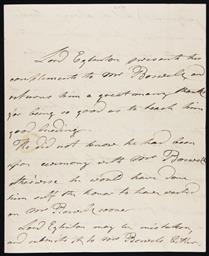 Lord Eglinton presents his
compliments to Mr Boswell, and
returns him a great many thanks
for being so good as to teach him
good breeding.
He did not know he had been
upon ceremony with Mr Boswell
otherwise he would have done
him self the honor to have waited
on Mr Boswell
Lord Eglinton may be mistaken,
and submits it to Mr Boswell